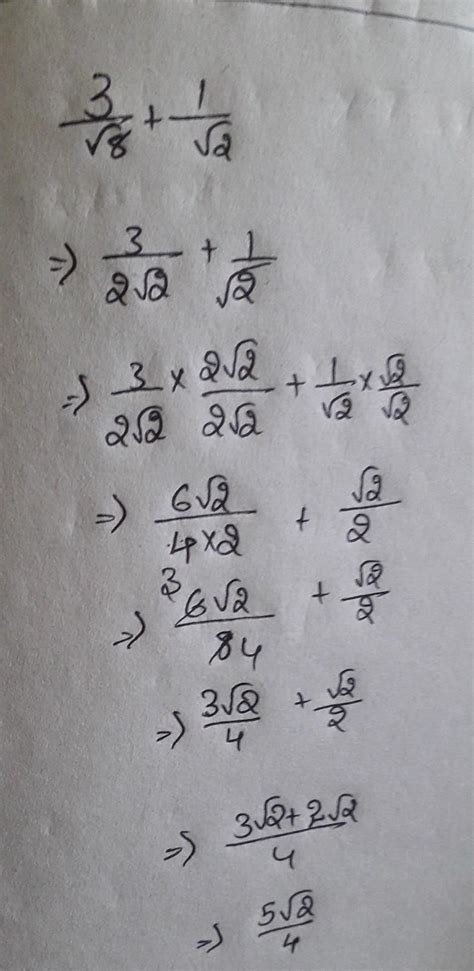 3/√8 + 1/√2
=> 3/2√2 + 1/√2
=> 3/2√2 × 2√2/2√2 + 1/√2 × √2/√2
=> 6√2/4×2 + √2/2
=> 3 6√2/8 4 + √2/2
=> 3√2/4 + √2/2
=> 3√2+2√2/4
=> 5√2/4